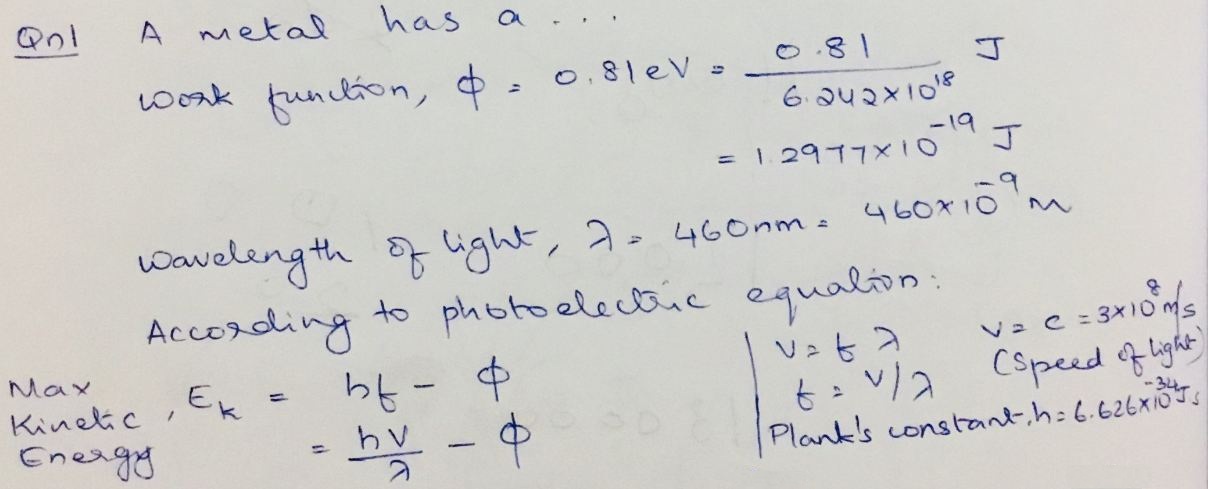 Qn1 A metal has a ...
Work function, ϕ = 0.81eV = 0.81 / 6.242×10^18 J
= 1.2977×10^-19 J
Wavelength of light, λ = 460nm = 460×10^-9 m
According to photoelectric equation:
Max Kinetic Energy, E_k = hf - ϕ
= hv/λ - ϕ
v = fλ
f = v/λ
v = c = 3×10^8 m/s
(Speed of light)
Plank's constant, h = 6.626×10^-34 Js